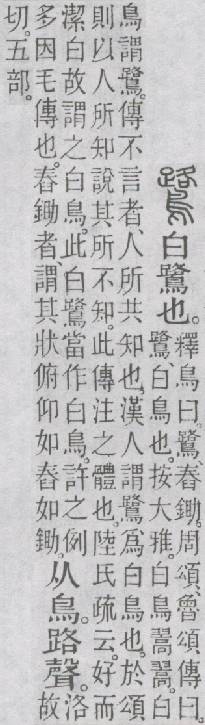 鷺白鷺也。
釋鳥曰。鷺、舂鋤。周頌、魯頌傳曰
鷺、白鳥也。按大雅。白鳥翯翯。白
鳥謂鷺。傳不言者、人所共知也。漢人謂鷺爲白鳥也。於頌
則以人所知說其所不知。此傳注之體也。陸氏疏云。好而
潔白故謂之白鳥。此白鷺當作白鳥。許之例
多因毛傳也。舂鋤者、謂其狀俯仰如舂如鋤。
从鳥。路聲。
洛
故
切。五部。